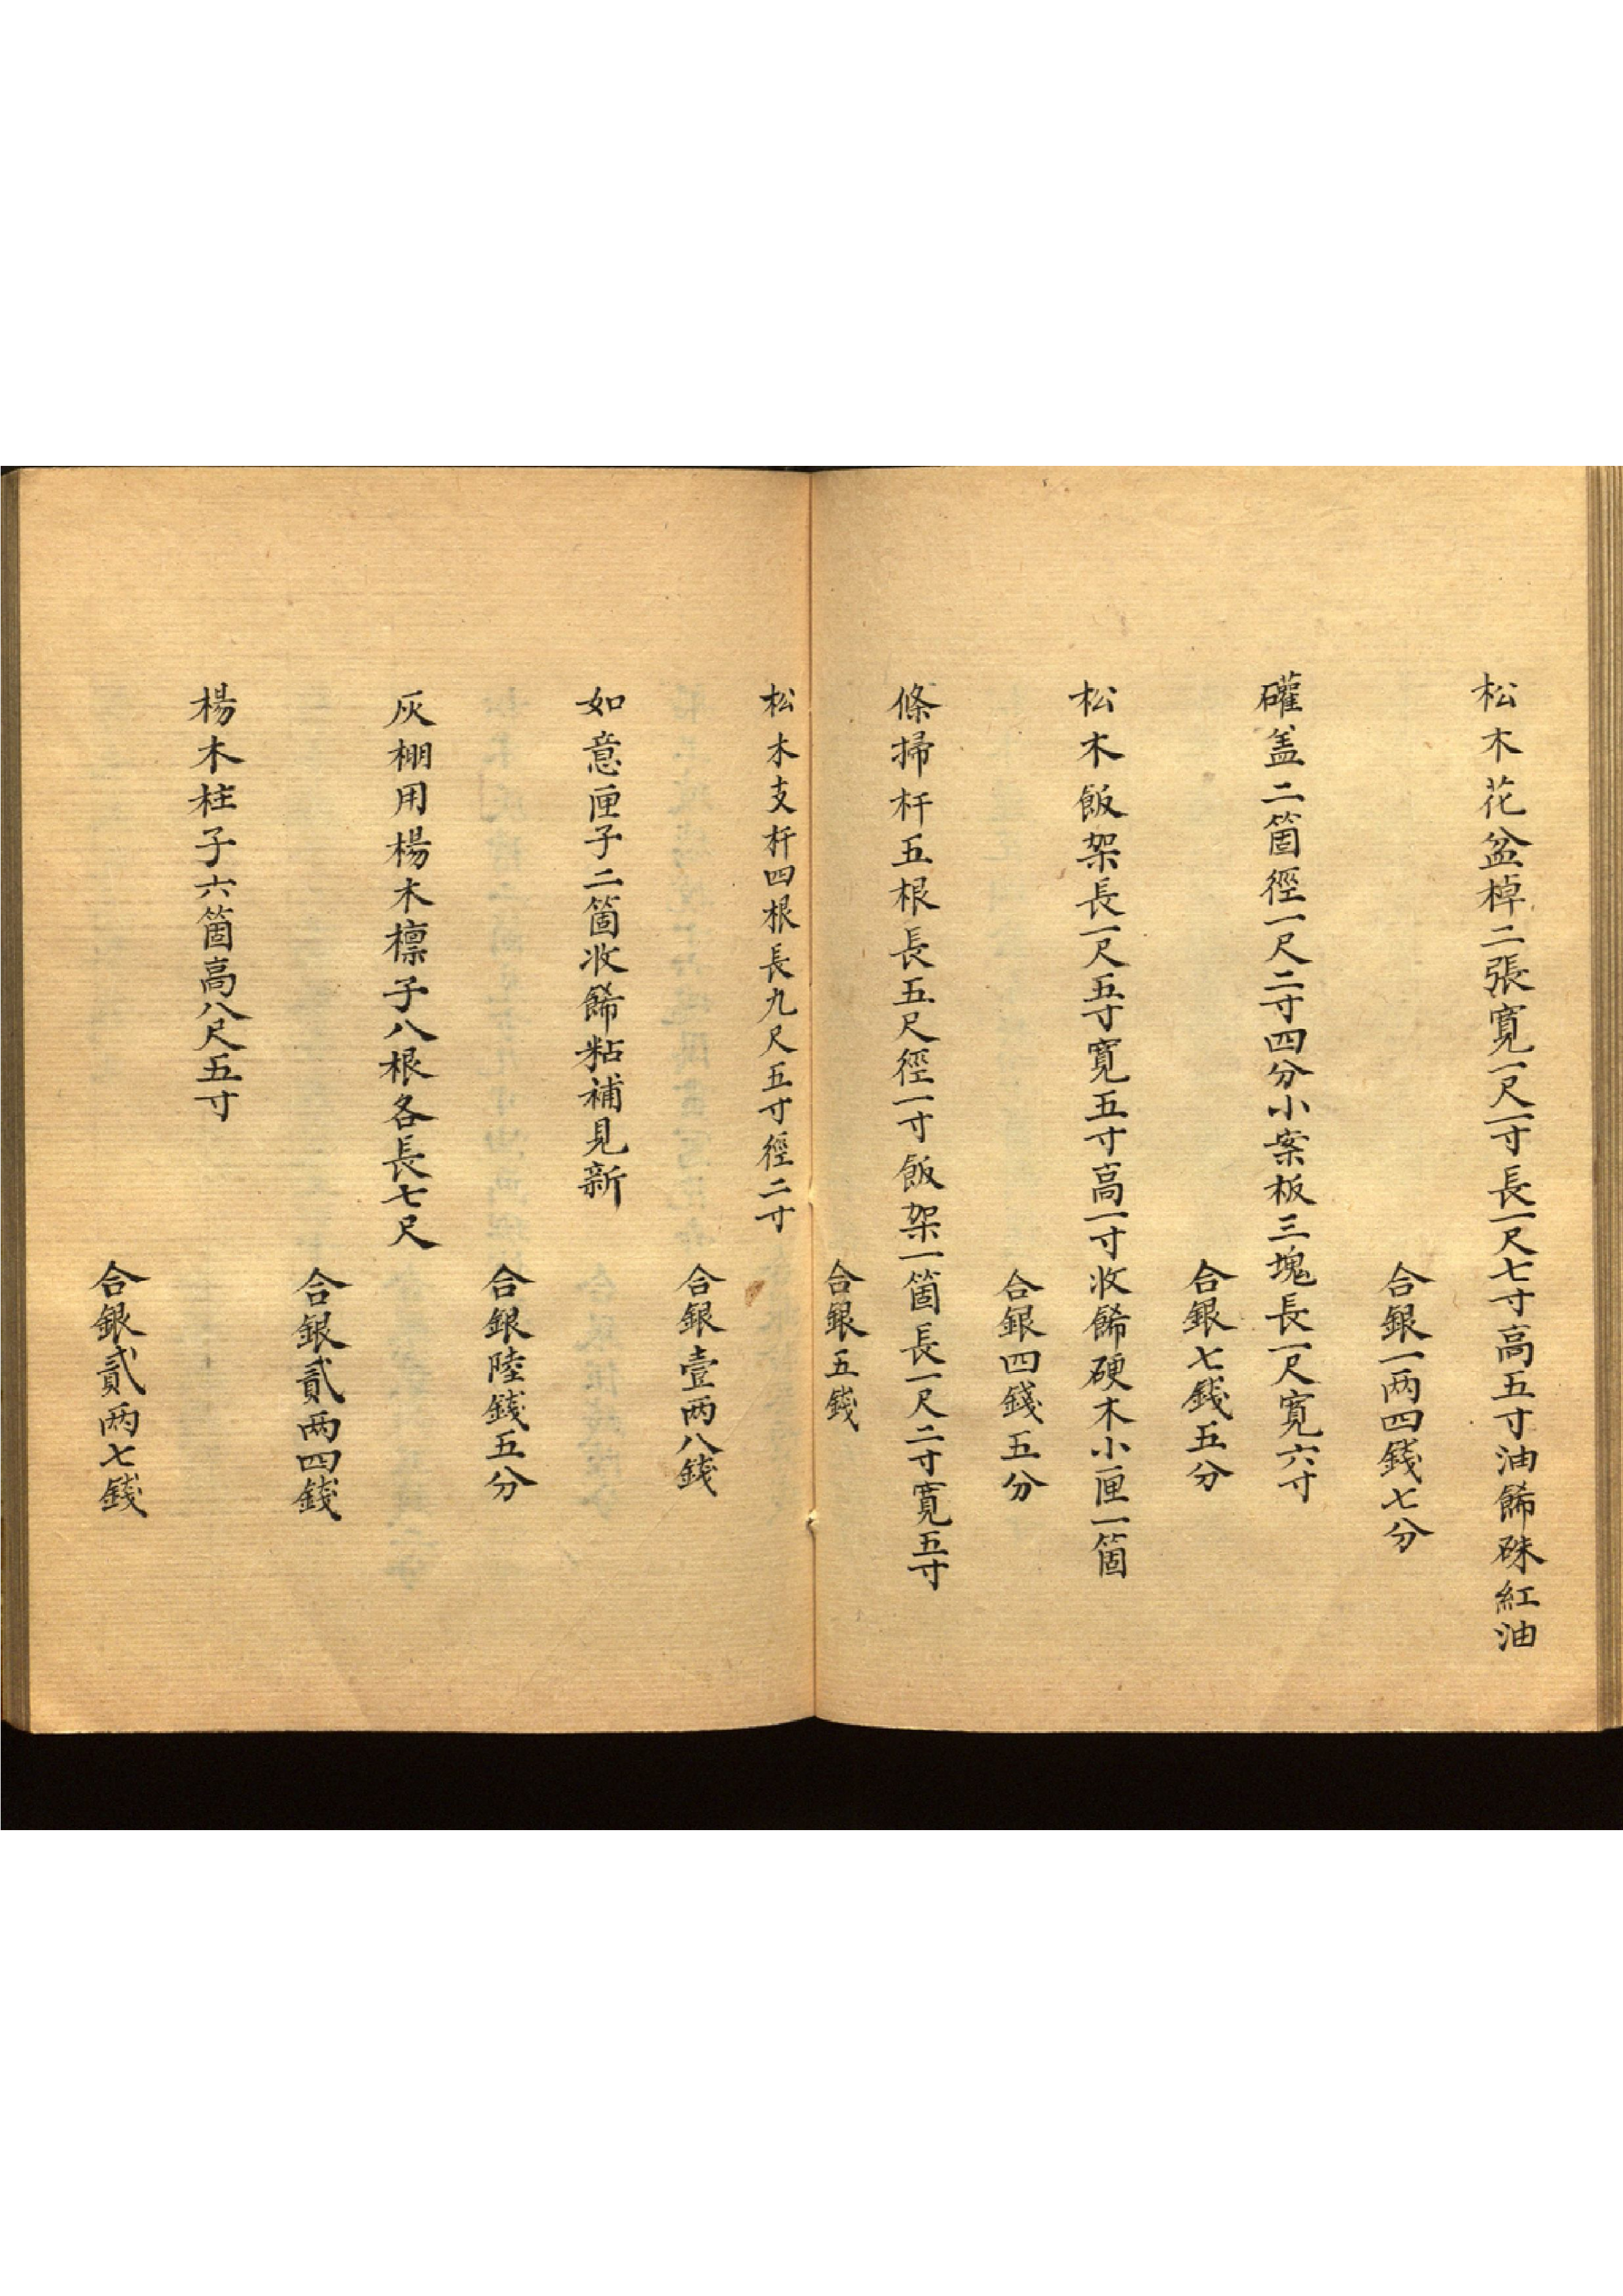 松木花盆棹二張寬一尺一寸長一尺七寸高五寸油餙硃紅油
合銀一两四錢七分
礶盖二箇徑一尺二寸四分小案板三塊長一尺寬六寸
合銀七錢五分
松木飯架長一尺五寸寬五寸高一寸收餙硬木小匣一箇
合銀四錢五分
條掃杆五根長五尺徑一寸飯架一箇長一尺二寸寬五寸
合銀五錢
松木支杆四根長九尺五寸徑二寸
合銀壹两八錢
如意匣子二箇收餙粘補見新
合銀陸錢五分
灰棚用楊木檁子八根各長七尺
合銀貳两四錢
楊木柱子六箇高八尺五寸
合銀貳两七錢